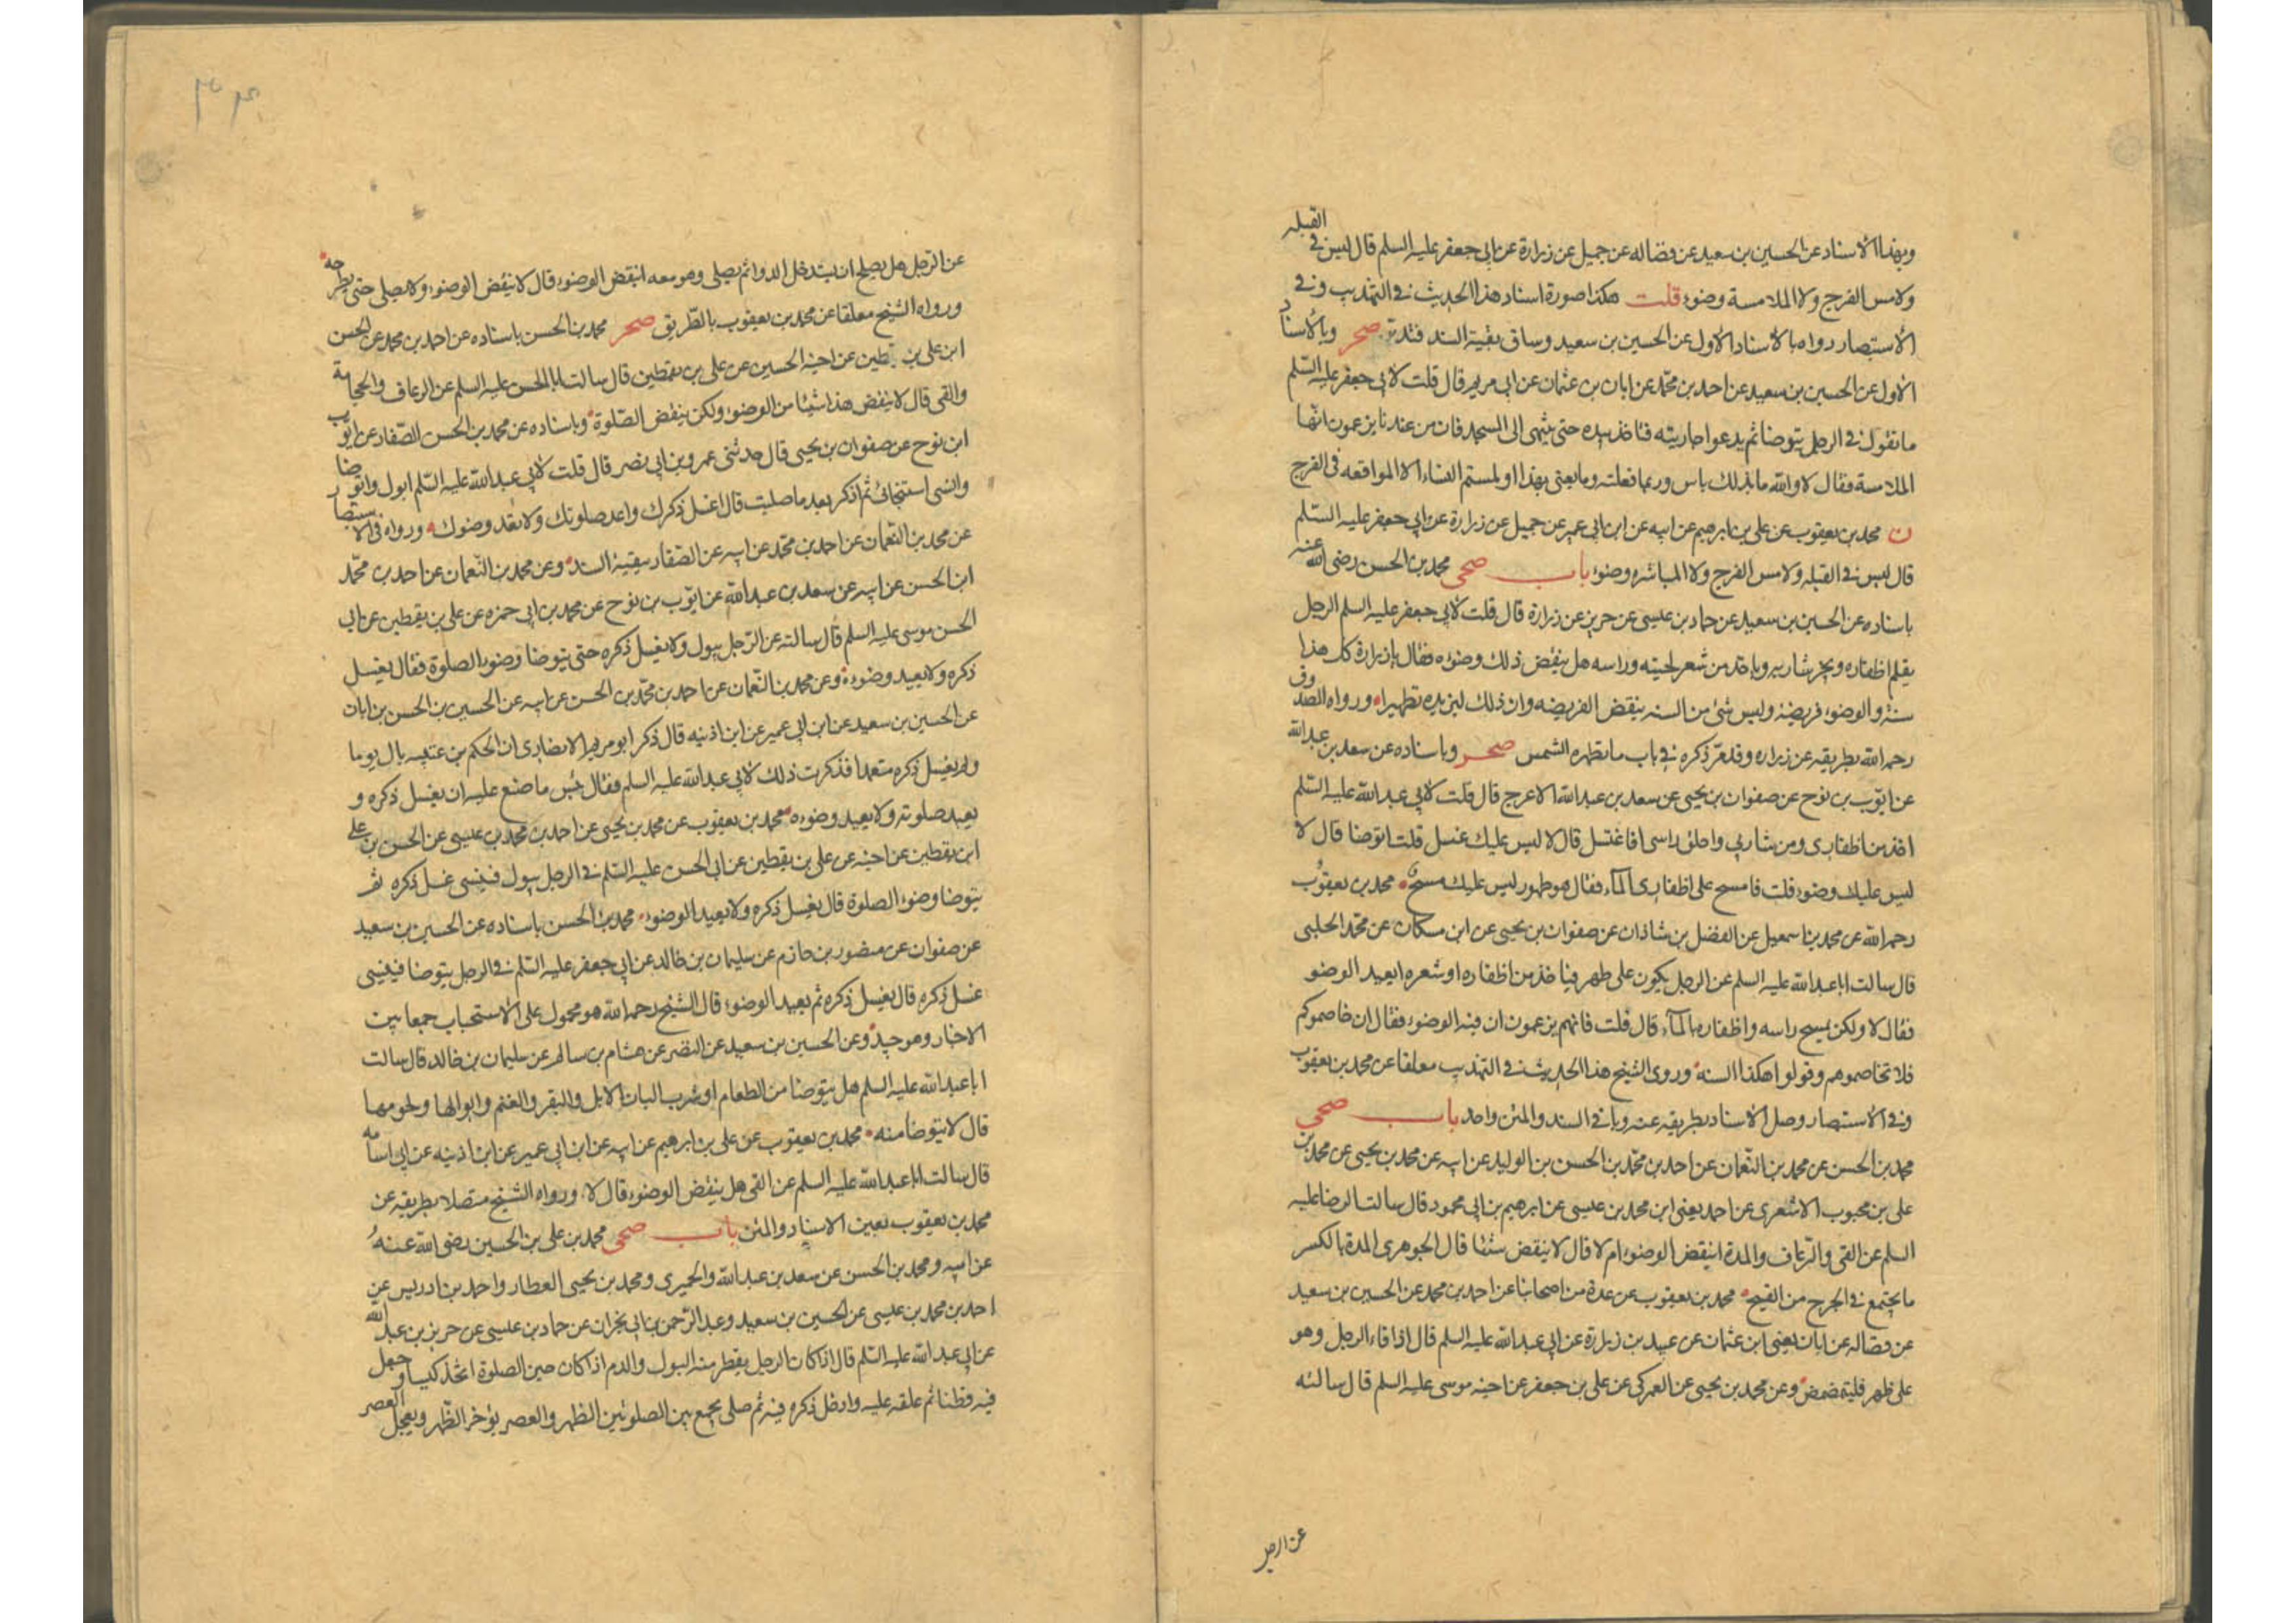 وبهذا الاسناد عن الحسين بن سعيد عن فضاله عن جميل عن زرارة عن ابي جعفر عليه السلم قال ليس في القبله
ولا مس الفرج ولا الملامسة وضوء قلت هكذا صورة اسناد هذا الحديث في التهذيب وفي
الاستبصار رواه بالاسناد الاول عن الحسين بن سعيد وساق بقية السند فتدبر صحر وبالاسناد
الاول عن الحسين بن سعيد عن احمد بن محمد عن ابان بن عثمان عن ابي مريم قال قلت لابي جعفر عليه السلم
ما تقول في الرجل يتوضا ثم يدعوا جاريته فتاخذ بيده حتى ينتهى الى المسجد فان من عندنا يزعمون انها
الملامسة فقال لا والله ما بذلك باس وربما فعلته وما يعنى بهذا او لمستم النساء الا المواقعه في الفرج
ن محمد بن يعقوب عن على بن ابرهيم عن ابيه عن ابن ابى عمير عن جميل عن زرارة عن ابي جعفر عليه السلم
قال ليس في القبله ولا مس الفرج ولا المباشره وضوء باب صحى محمد بن الحسن رضى الله عنه
باسناده عن الحسين بن سعيد عن حماد بن عيسى عن حريز عن زرارة قال قلت لابي جعفر عليه السلم الرجل
يقلم اظفاره ويجز شاربه وياخذ من شعر لحيته وراسه هل ينقض ذلك وضوءه فقال يا زرارة كل هذا
سنة والوضوء فريضة وليس شئ من السنه ينقض الفريضه وان ذلك ليزيده تطهيرا ورواه الصدوق
رحمه الله بطريقه عن زراره وقد مر ذكره في باب ما تطهره الشمس صحر وباسناده عن سعد بن عبد الله
عن ايوب بن نوح عن صفوان بن يحيى عن سعد بن عبد الله الاعرج قال قلت لابي عبد الله عليه السلم
اخذ من اظفارى ومن شاربي واحلق راسى افاغتسل قال لا ليس عليك غسل قلت اتوضا قال لا
ليس عليك وضوء قلت فامسح على اظفارى الماء فقال هو طهور ليس عليك مسح محمد بن يعقوب
رحمه الله عن محمد بن اسمعيل عن الفضل بن شاذان عن صفوان بن يحيى عن ابن مسكان عن محمد الحلبى
قال سالت ابا عبد الله عليه السلم عن الرجل يكون على طهر فياخذ من اظفاره او شعره ايعيد الوضو
فقال لا ولكن يمسح راسه واظفاره بالماء قال قلت فانهم يزعمون ان فيه الوضوء فقال ان خاصموكم
فلا تخاصموهم وقولوا هكذا السنه وروى الشيخ هذا الحديث في التهذيب معلقا عن محمد بن يعقوب
وفي الاستبصار وصل الاسناد بطريقه عنه وباقي السند والمتن واحد باب صحى
محمد بن الحسن عن محمد بن النعمان عن احمد بن محمد بن الحسن بن الوليد عن ابيه عن محمد بن يحيى عن محمد بن
على بن محبوب الاشعرى عن احمد يعنى ابن محمد بن عيسى عن ابرهيم بن ابي محمود قال سالت الرضا عليه
السلم عن القى والرعاف والمدة اينقض الوضوء ام لا قال لا ينقض شيئا قال الجوهرى المدة بالكسر
ما يجتمع في الجرح من القيح محمد بن يعقوب عن عدة من اصحابنا عن احمد بن محمد عن الحسين بن سعيد
عن فضاله عن ابان يعنى ابن عثمان عن عبيد بن زرارة عن ابي عبد الله عليه السلم قال اذا قاء الرجل وهو
على طهر فليتمضمض وعن محمد بن يحيى عن العمركى عن على بن جعفر عن اخيه موسى عليه السلم قال سالته
عن الرجل
عن الرجل هل يصلح ان يستدخل الدوا ثم يصلى وهو معه اينقض الوضوء قال لا ينقض الوضوء ولا يصلى حتى يطرحه
ورواه الشيخ معلقا عن محمد بن يعقوب بالطريق صحر محمد بن الحسن باسناده عن احمد بن محمد عن الحسن
ابن على بن يقطين عن اخيه الحسين عن على بن يقطين قال سالت ابا الحسن عليه السلم عن الرعاف والحجامة
والقى قال لا ينقض هذا شيئا من الوضوء ولكن ينقض الصلوة وباسناده عن محمد بن الحسن الصفار عن ايوب
ابن نوح عن صفوان بن يحيى قال حدثنى عمرو بن ابى نصر قال قلت لابي عبد الله عليه السلم ابول واتوضا
وانسى استنجائى ثم اذكر بعد ما صليت قال اغسل ذكرك واعد صلوتك ولا تعد وضوك ورواه في الاستبصار
عن محمد بن النعمان عن احمد بن محمد عن ابيه عن الصفار ببقية السند وعن محمد بن النعمان عن احمد بن محمد
ابن الحسن عن ابيه عن سعد بن عبد الله عن ايوب بن نوح عن محمد بن ابي حمزه عن على بن يقطين عن ابي
الحسن موسى عليه السلم قال سالته عن الرجل يبول ولا يغسل ذكره حتى يتوضا وضوء الصلوة فقال يغسل
ذكره ولا يعيد وضوءه وعن محمد بن النعمان عن احمد بن محمد بن الحسن عن ابيه عن الحسين بن الحسن بن ابان
عن الحسين بن سعيد عن ابن ابي عمير عن ابن اذينه قال ذكر ابو مريم الانصارى ان الحكم بن عتيبه بال يوما
ولم يغسل ذكره متعمدا فذكرت ذلك لابي عبد الله عليه السلم فقال بئس ما صنع عليه ان يغسل ذكره و
يعيد صلوته ولا يعيد وضوءه محمد بن يعقوب عن محمد بن يحيى عن احمد بن محمد بن عيسى عن الحسن بن على
ابن يقطين عن اخيه عن على بن يقطين عن ابى الحسن عليه السلم في الرجل يبول فينسى غسل ذكره ثم
يتوضا وضوء الصلوة قال يغسل ذكره ولا يعيد الوضوء محمد بن الحسن باسناده عن الحسين بن سعيد
عن صفوان عن منصور بن حازم عن سليمان بن خالد عن ابي جعفر عليه السلم في الرجل يتوضا فينسى
غسل ذكره قال يغسل ذكره ثم يعيد الوضوء قال الشيخ رحمه الله هو محمول على الاستحباب جمعا بين
الاخبار وهو جيد وعن الحسين بن سعيد عن النضر عن هشام بن سالم عن سليمان بن خالد قال سالت
ابا عبد الله عليه السلم هل يتوضا من الطعام او شرب البان الابل والبقر والغنم وابوالها ولحومها
قال لا يتوضا منه محمد بن يعقوب عن على بن ابرهيم عن ابيه عن ابن ابى عمير عن ابن اذينه عن ابى اسامه
قال سالت ابا عبد الله عليه السلم عن القى هل ينقض الوضوء قال لا ورواه الشيخ متصلا بطريقه عن
محمد بن يعقوب بعين الاسناد والمتن باب صحى محمد بن على بن الحسين رضى الله عنه
عن ابيه ومحمد بن الحسن عن سعد بن عبد الله والحميرى ومحمد بن يحيى العطار واحمد بن ادريس عن
احمد بن محمد بن عيسى عن الحسين بن سعيد وعبد الرحمن بن ابي نجران عن حماد بن عيسى عن حريز بن عبد الله
عن ابي عبد الله عليه السلم قال اذا كان الرجل يقطر منه البول والدم اذا كان حين الصلوة اتخذ كيسا وجعل
فيه قطنا ثم علقه عليه وادخل ذكره فيه ثم صلى يجمع بين الصلوتين الظهر والعصر يؤخر الظهر ويعجل العصر